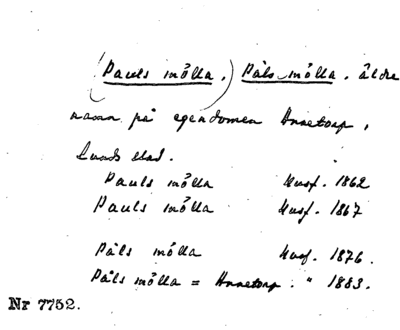 (Pauls mölla,) Påls mölla, äldre
namn på egendomen Annetorp,
Lunds stad.
Pauls mölla Husf. 1862
Pauls mölla Husf. 1867
Påls mölla Husf. 1876.
Påls mölla = Annetorp. " 1883.
Nr 7752.